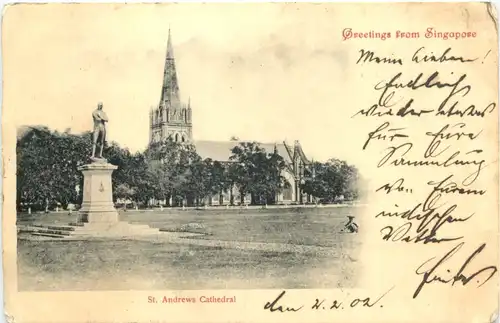 Greetings from Singapore
Meine Lieben!
Endlich
wieder etwas
für Eure
Sammlung
von Eurem
indischen
Fritz
St. Andrews Cathedral
den 2.2.02.